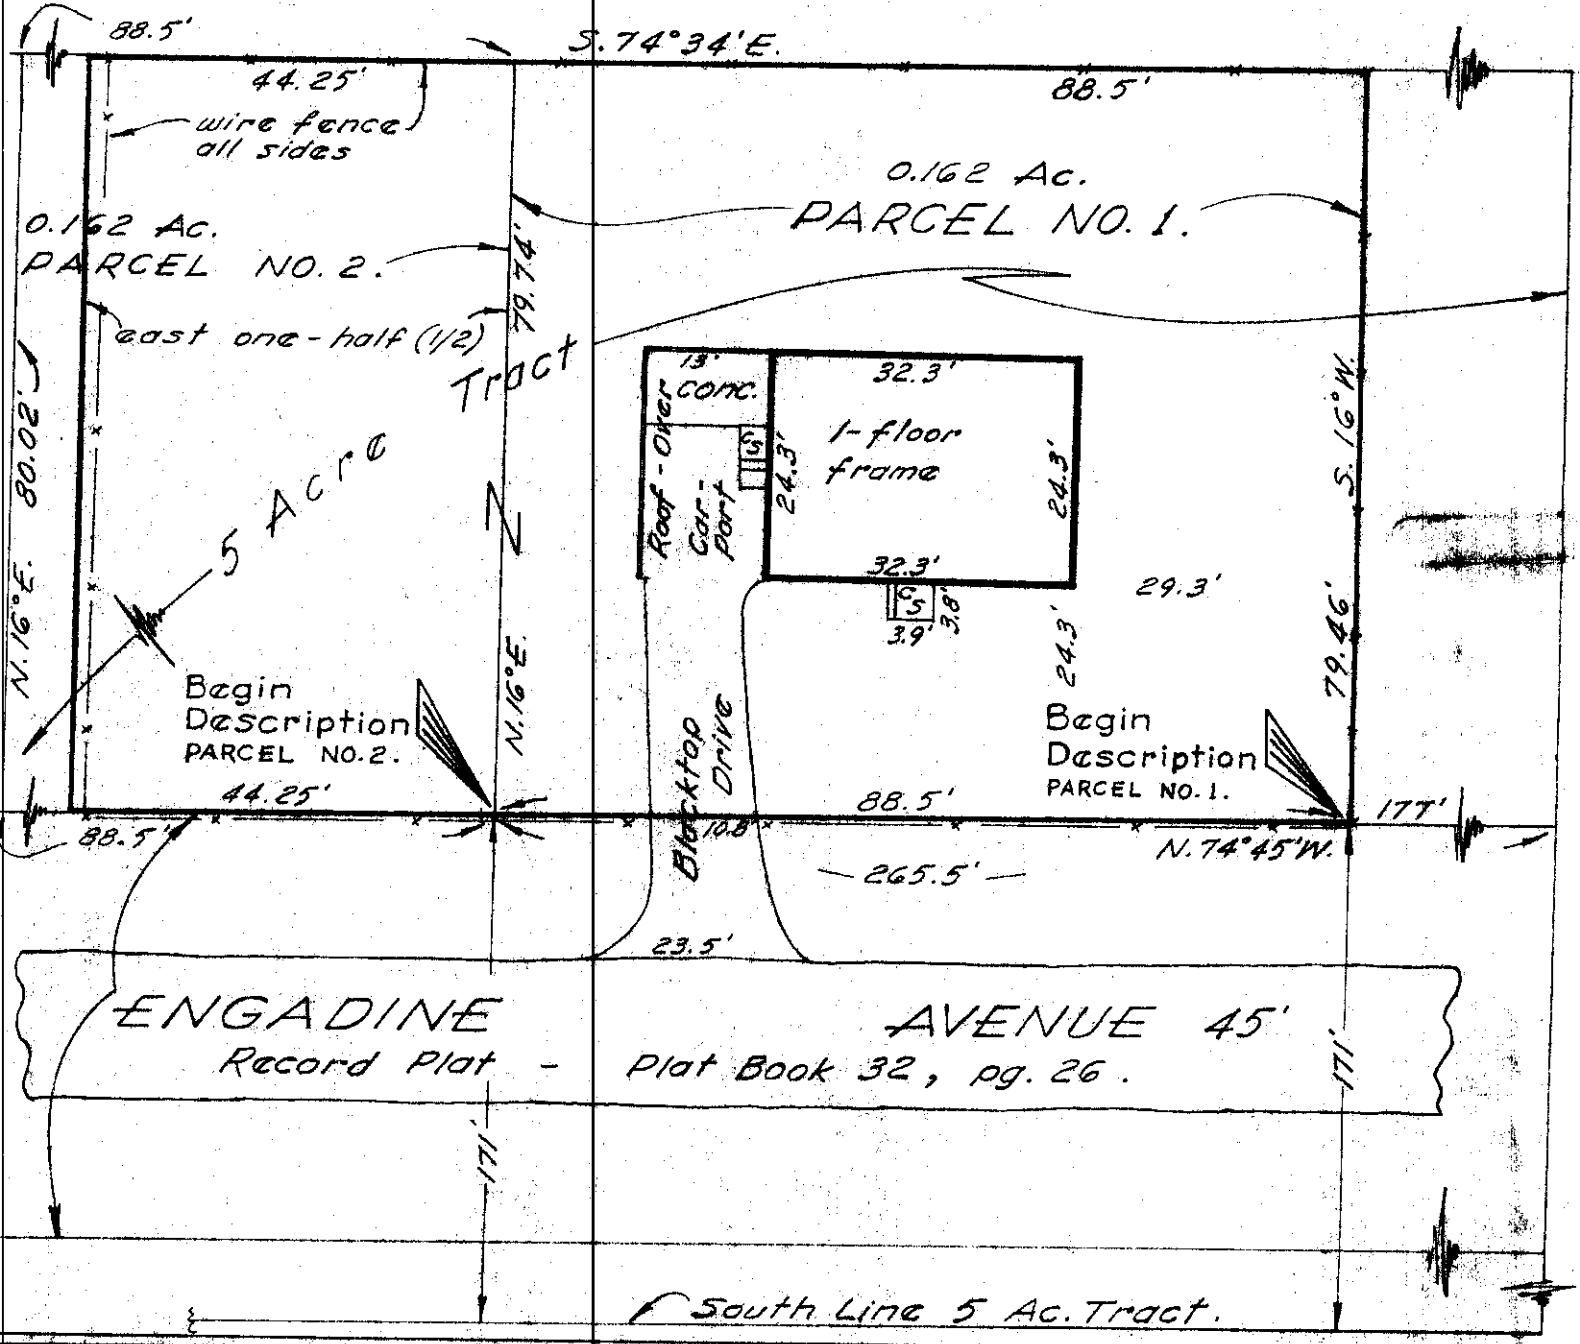 88.5'
S. 74°34' E.
44.25'
88.5'
wire fence
all sides
0.162 Ac.
PARCEL NO. 1.
0.162 Ac.
PARCEL NO. 2.
79.74'
east one-half (1/2)
5 Acre Tract
N. 16° E. 80.02'
13'
conc.
32.3'
Roof-Over
Car-
port
CS
24.3'
1-floor
frame
24.3'
32.3'
CS
3.9'
3.8'
24.3'
29.3'
S. 16° W.
79.46'
N. 16° E.
Begin
Description
PARCEL NO. 2.
Begin
Description
PARCEL NO. 1.
Blacktop
Drive
44.25'
88.5'
10.8'
88.5'
177'
N. 74°45' W.
265.5'
23.5'
ENGADINE AVENUE 45'
Record Plat - Plat Book 32, pg. 26.
171'
171'
South Line 5 Ac. Tract.